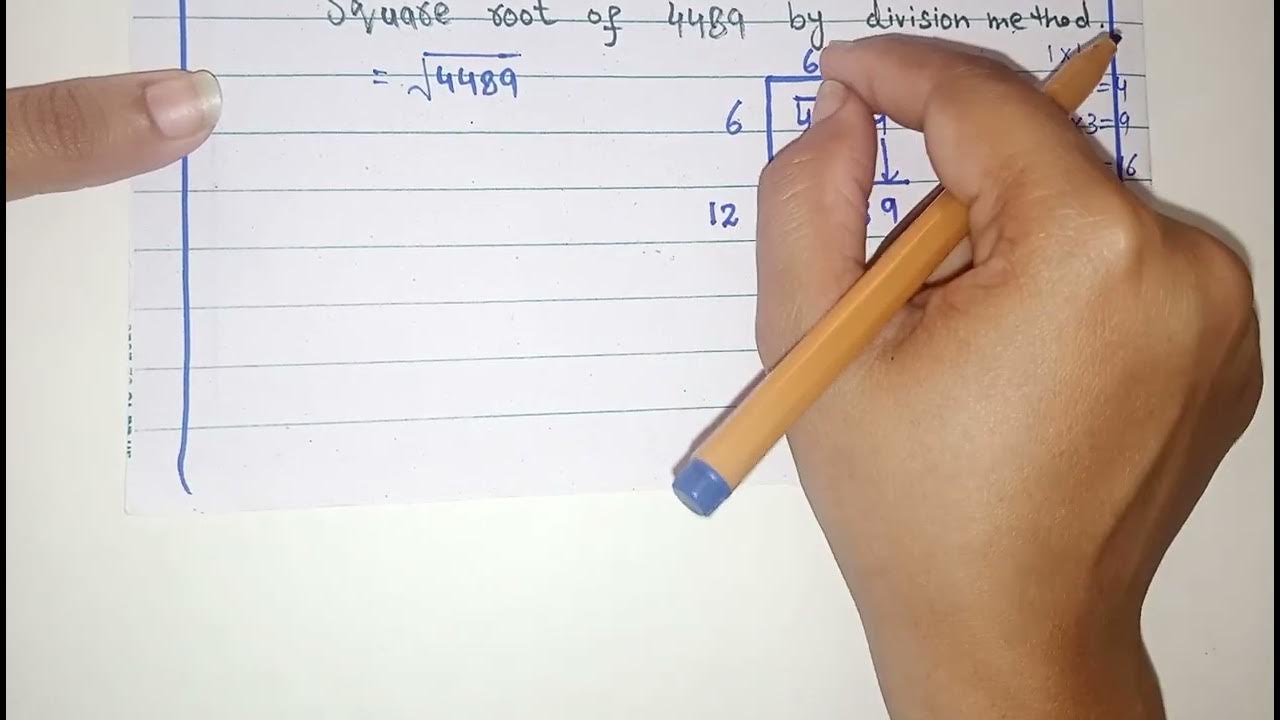 Square root of 4489 by division method.
= √4489
6
6
4
9
12
9
1×
=4
×3=9
=16